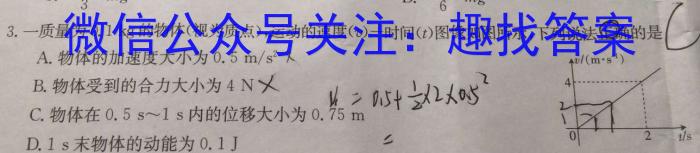 3. 一质量为0.1 kg的物体(视为质点)运动的速度(v)—时间(t)图像如图所示,下列说法正确的是 C
微信公众号关注:趣找答案
A. 物体的加速度大小为 0.5 m/s²
B. 物体受到的合力大小为 4 N ×
C. 物体在 0.5 s~1 s 内的位移大小为 0.75 m
D. 1 s 末物体的动能为 0.1 J
= 0.5+½×2×0.5²
=
v/(m·s⁻¹)
4
2
1
0 2 t/s